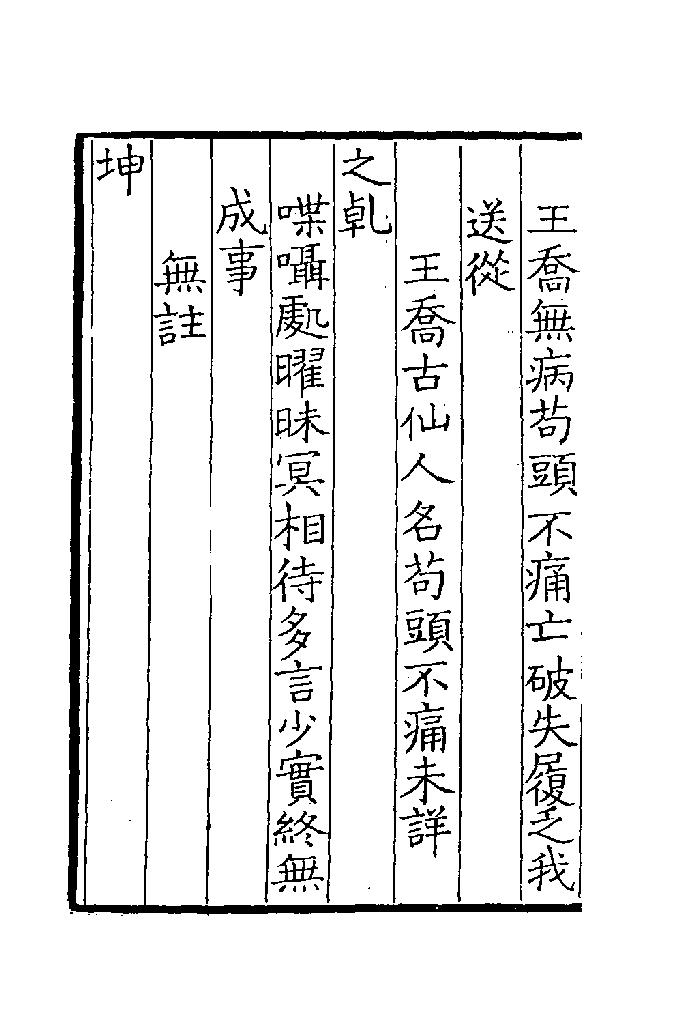 王喬無病苟頭不痛亡破失履乏我
送從
王喬古仙人名苟頭不痛未詳
之乹
喋囁處曜昧冥相待多言少實終無
成事
無註
坤